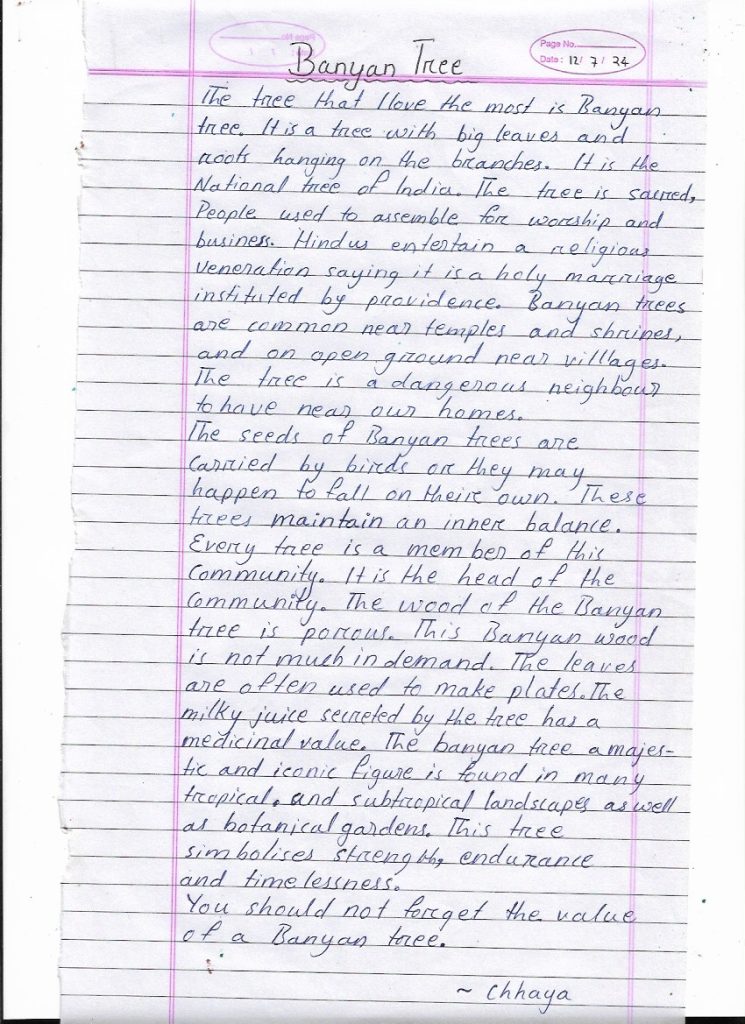 Page No.
Date: 12/ 7 / 24
Banyan Tree
The tree that I love the most is Banyan
tree. It is a tree with big leaves and
roots hanging on the branches. It is the
National tree of India. The tree is sacred,
People used to assemble for worship and
business. Hindus entertain a religious
veneration saying it is a holy marriage
instituted by providence. Banyan trees
are common near temples and shrines,
and on open ground near villlages.
The tree is a dangerous neighbour
to have near our homes.
The seeds of Banyan trees are
carried by birds or they may
happen to fall on their own. These
trees maintain an inner balance.
Every tree is a member of this
Community. It is the head of the
Community. The wood of the Banyan
tree is porous. This Banyan wood
is not much in demand. The leaves
are often used to make plates. The
milky juice secreted by the tree has a
medicinal value. The banyan tree a majes-
tic and iconic figure is found in many
tropical, and subtropical landscapes as well
as botanical gardens. This tree
simbolises strength, endurance
and timelessness.
You should not forget the value
of a Banyan tree.
~ Chhaya